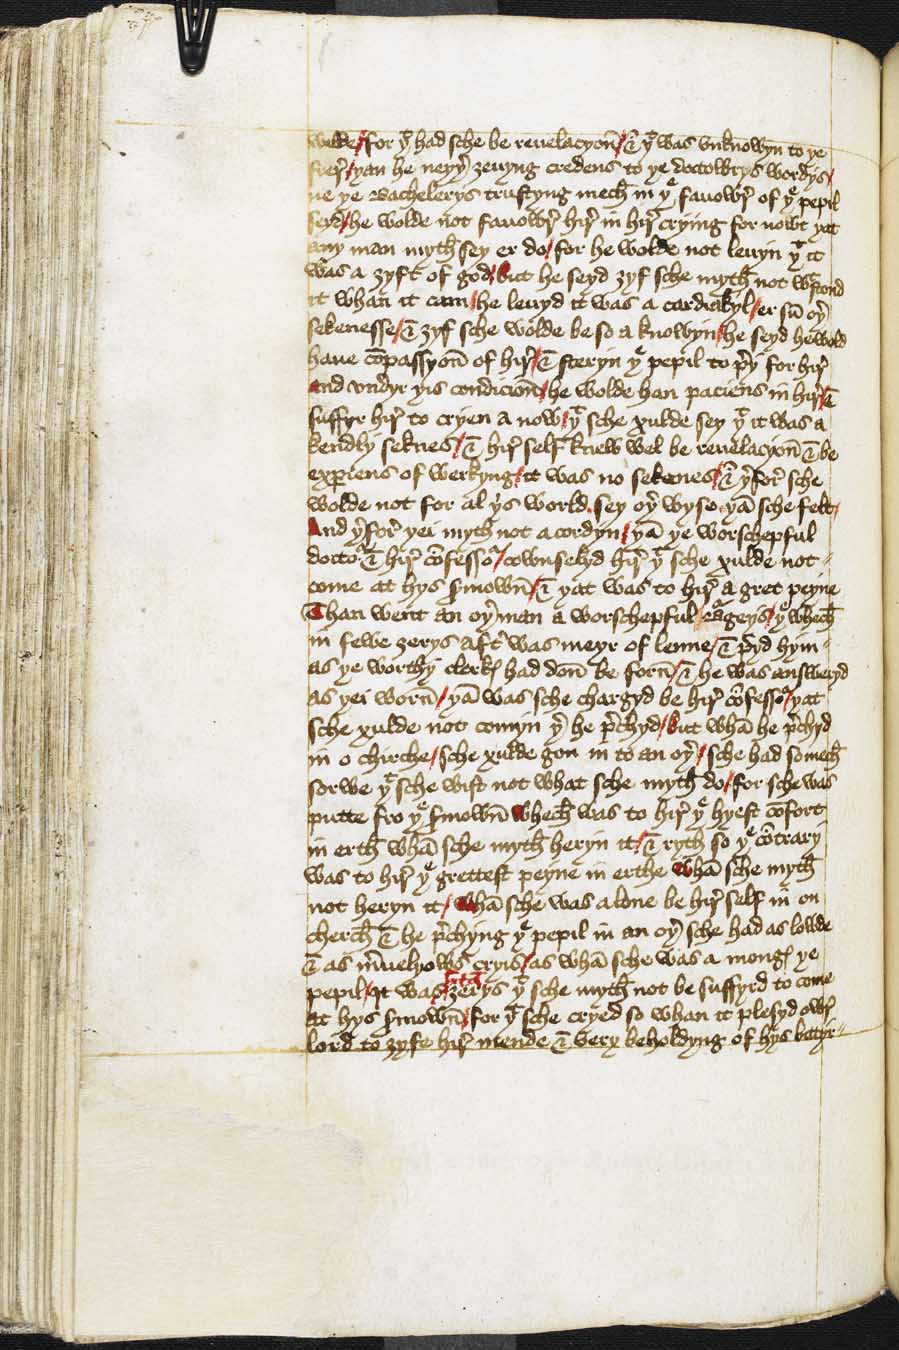 wolde / for yͭ had sche be reuelacyon̄ / & yͭ was vnknowyn to ye
frer̛ / yan he neyyr̛ ȝeuyng credens to ye doctowrys wordys /
ne ye Bachelerys trustyng mech̄ in yͤ fauowr̛ of yͤ pepil
seyd / he wolde not fauowr̛ hir̛ in hir̛ crying for nowt yat
any man myth̄ sey er do / for he wolde not leuyn yͭ it
was a ȝyft of god / But he seyd ȝyf sche myth̄ not wͭstond
it whan it cam / he leuyd it was a cardiakyl / er sū oyr̛
sekenesse / & ȝyf sche wolde be so a knowyn / he seyd he wold
haue cōpassyon̄ of hir̛ / & steryn yͤ pepil to p̄y for hir̛
And vndyr yis condicion̄ / he wolde han paciens in hir̛ / &
suffyr hir̛ to cryen a now / yͭ sche xulde sey yͭ it was a
kendly seknes / & hir̛ self knew wel be reuelacyon̄ & be
experiens of werkyng / it was no sekenes / & yr̛for̛ sche
wolde not for al ys world sey oyr̛ wyse yā sche felt /
And yr̛for̛ yei myth̄ not a cordyn / yā ye worschepful
doctoͬ & hir̛ cōfessoͬ / cownselyd hir̛ yͭ sche xulde not
come at hys s̛mown̄ / & yat was to hir̛ a gret peyne
Than went an oyr̛ man a worschepful Bͣgeys / yͤ whech̄
in fewe ȝerys aft̛ was meyr of lenne / & p̄yd hym
as ye worthy clerkꝭ had don̄ be forn̄ / & he was answeryd
as yei worn̄ / yā was sche chargyd be hir̛ cōfessoͬ / yat
sche xulde not comyn yr̛ he p̄chyd / But whā he p̄chyd
in o chirche / sche xulde gon in to an oyr̛ / sche had so mech̄
sorwe yͭ sche wist not what sche myth̄ do / for sche was
putte fro yͤ s̛mown̄ whech̄ was to hir̛ yͤ hyest cōfort
in erth̄ whā sche myth̄ heryn it / & ryth so yͤ cōtrary
was to hir̛ yͤ grettest peyne in erthe whā sche myth̄
not heryn it / whā sche was a lone be hir̛ self in on
cherch̄ & he p̄chyng yͤ pepil in an oyr̛ sche had as lowde
& as m̛uelyows cryis / as whā sche was a mongꝭ ye
pepil / it was ȝerys yͭ sche myth̄ not be suffyrd to come
at hys s̛mown̄ / for yͭ sche cryed so whan it plesyd owꝭ
lord to ȝyfe hir̛ mende & very beholdyng of hys bittyr